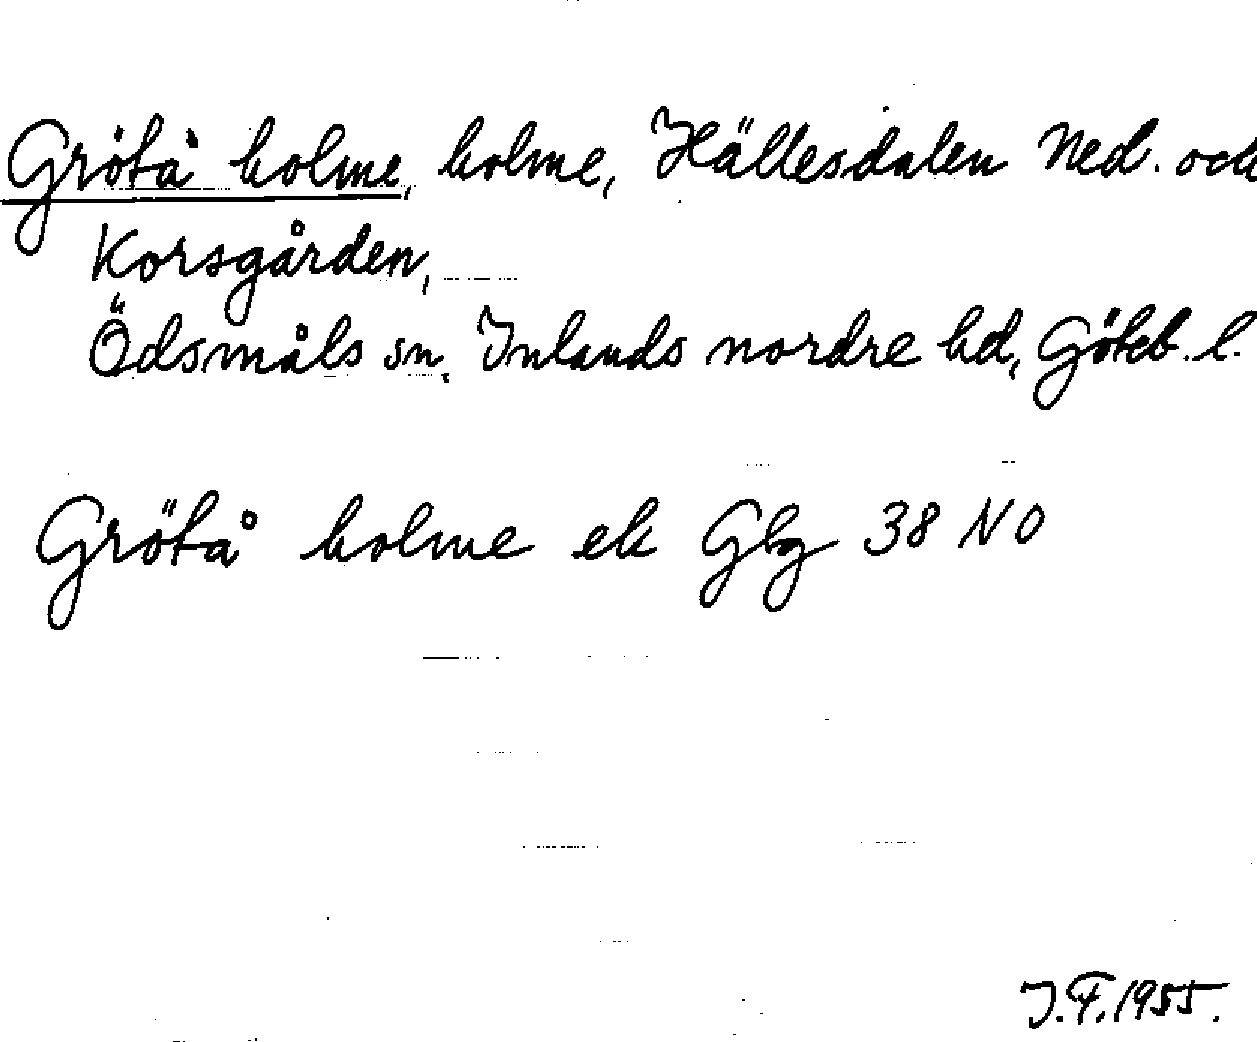 Grötå holme, holme, Hällesdalen Ned. och
Korsgården,
Ödsmåls sn, Inlands nordre hd, Göteb. l.
Grötå holme ek Gbg 38 NO
J.F. 1955.